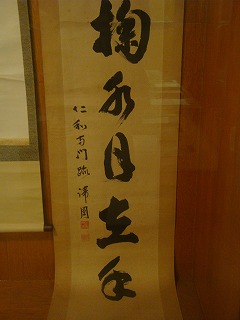 掬水月在手
仁和寺門跡